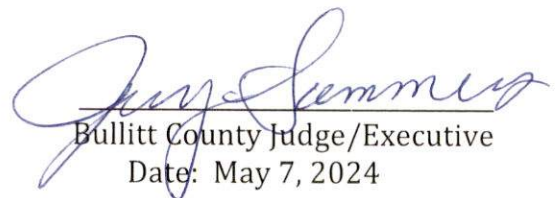 Jerry Summers
Bullitt County Judge/Executive
Date: May 7, 2024